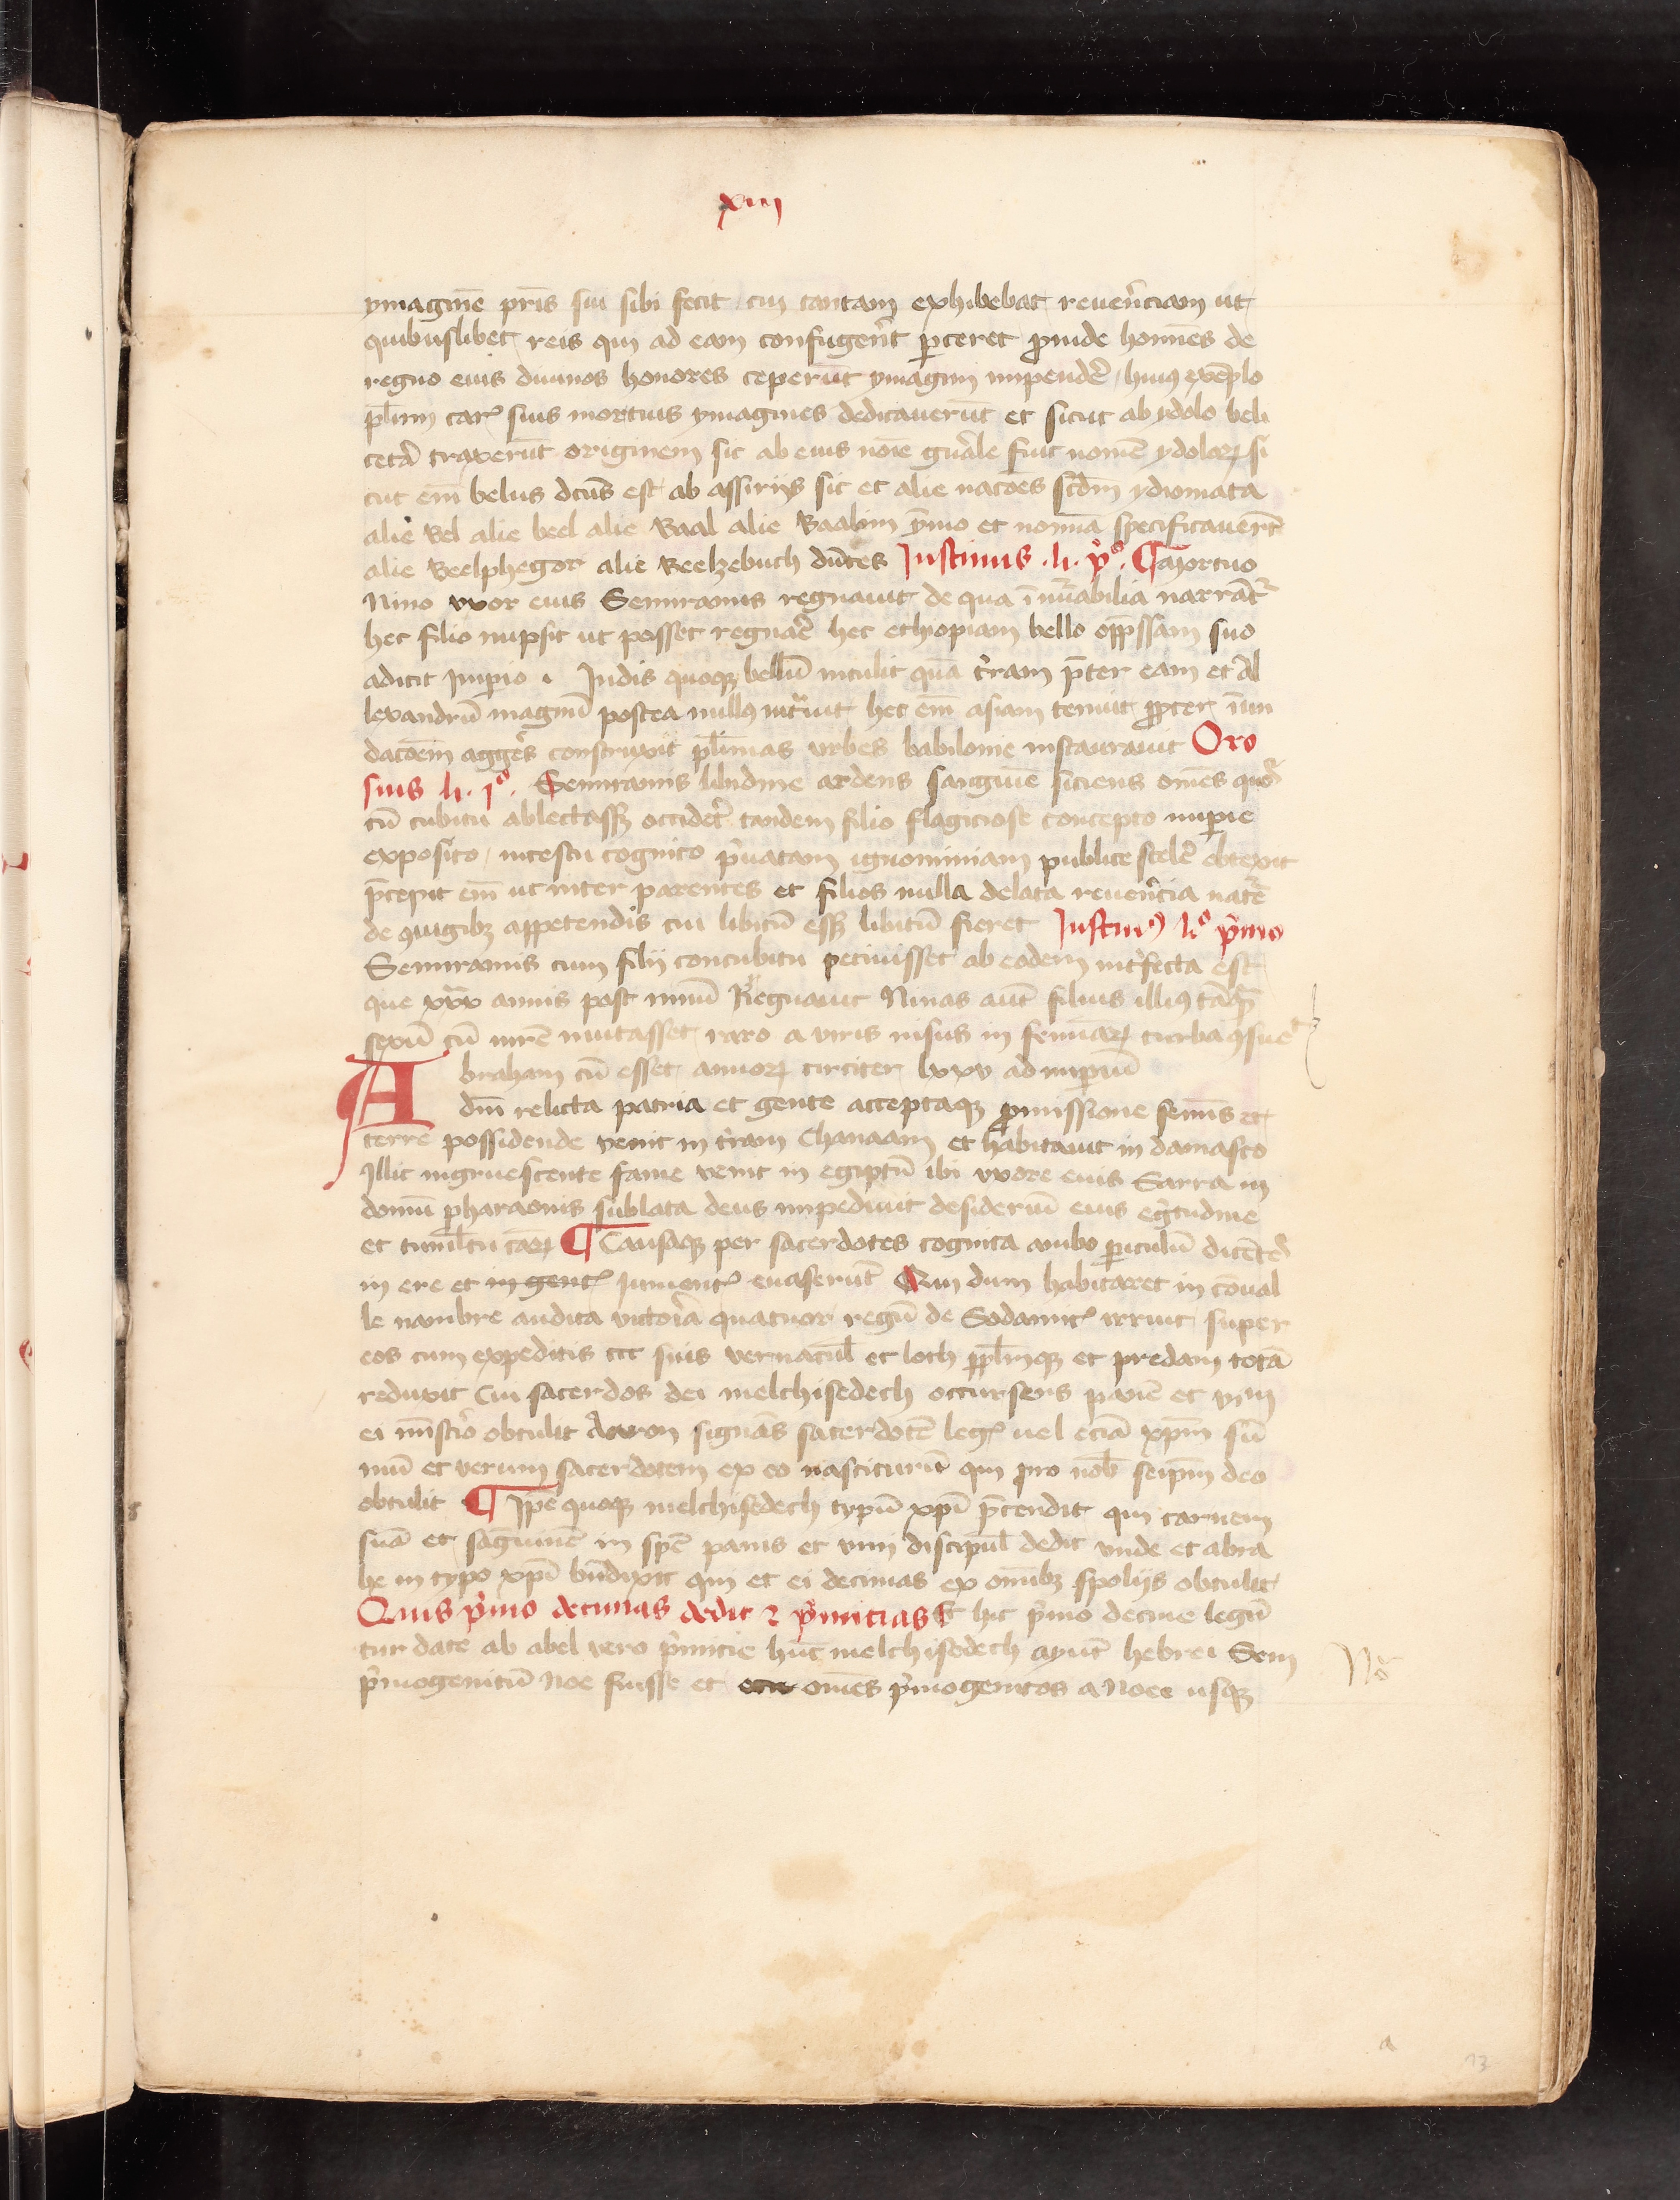 xiii
ymaginē pr̄is sui sibi fecit cui tantam exhibebat reuer̄ciam ut
quibuslibet reis qui ad eam confuger̄t ꝑceret ꝓinde homīes de
regno eius diuinos honores ceperūt ymagini impendēr huiꝰ exēplo
pl̄imi caꝝ suis mortuis ymagines dedicauerūt et sicut ab ydolo beli
ceta᷑ traxerūt originem sic ab eius nōie gn̄ale fuit nomē ydoloꝝ si
cut em̄ belus dc̄us est ab assirijs sic et alie nac̄oes scd̄m ydiomata
alie Bel alie beel alie Baal alie Baalim p̄mo et nomīa specificauer̄t
alie Beelphegor alie Beelzebuch dn̄tes Justinus .li. pº. ¶ Mortuo
Nino vxor eius Semiramis regnauit de qua īnūabilia narrāt᷑
hec filio nupsit ut posset regnar̄e hec ethiopiam bello opp̄ssam suo
adicit Imperio . Indis quoqꝫ bellū intulit quā t̄ram p̄ter eam et Al
lexandrū magnū postea nullꝰ int̄uit hec em̄ asiam tenuit ꝓpter īun
dac̄oem agger̄es construxit pl̄imas urbes babilonie instaurauit Oro
sius li. jº. Semiramis libidine ardens sanguinē siciens om̄es quos
cū cubitu ablectassꝫ occider̄et tandem filio flagiciose concepto impie
exposito incestu cognito p̄uatam ignominiam publice sceler̄e obtexit
p̄cepit em̄ ut inter parentes et filios nulla delata reuer̄cia nat̄e
de ꝯiugibꝫ appetendis cui libitū essꝫ libitū fieret Justinꝰ liº p̄mo
Semiramis cum filij concubitu peciuisset ab eodem int̄fecta est
que xxx annis post ninū Regnauit Ninas aut̄ filius illiꝰ tāqꝫ
sexū cū mr̄e mutasset raro a viris uisus in feminaꝝ turba ꝯsue
Abraham cū esset annoꝝ circiter lxxv ad imperiū
dn̄i relicta patria et gente acceptaqꝫ ꝓmissione semīs et
terre possidende venit in t̄ram Chanaam et habitauit in damasco
Illic ingruescente fame venit in egiptū ibi vxore eius Sarra in
domū pharaonis sublata deus impediuit desideriū eius egr̄tudine
et tumltu caꝝ ¶ Causaqꝫ per sacerdotes cognita ambo periculū
in ere et in gent Iument euaserūt Qui dum habitaret in cōual
le mambre audita victor̄ia quatuor regū de Sodomit irruit super
eos cum expeditis ccc suis vernacul̄ et loth et predam totā
reduxit Cui sacerdos dei melchisedech occurrens panē et vinū
ei obtulit Aaron signans sacerdotē leg uel eciā xpm̄ sū
mū et verum sacerdotem ex eo nasciturū qui pro nob̄ seip̄m deo
obtulit ¶ Ip̄e quoqꝫ melchisedech typū xpī p̄tendit qui carnem
suā et sāguinē in sp̄e panis et vini discipul̄ dedit vnde et abra
he in typo xpī bn̄dixit qui et ei decimas ex om̄ibꝫ spolijs obtulit
Quis p̄mo decimas dedit ⁊ p̄mitias Et hic p̄mo decime legū
tur date ab abel vero p̄micie hūc melchisedech ayūt hebrei Sem
p̄mogenitū Noe fuisse et om̄es p̄mogenitos a Noe usqꝫ
Nº
a
13